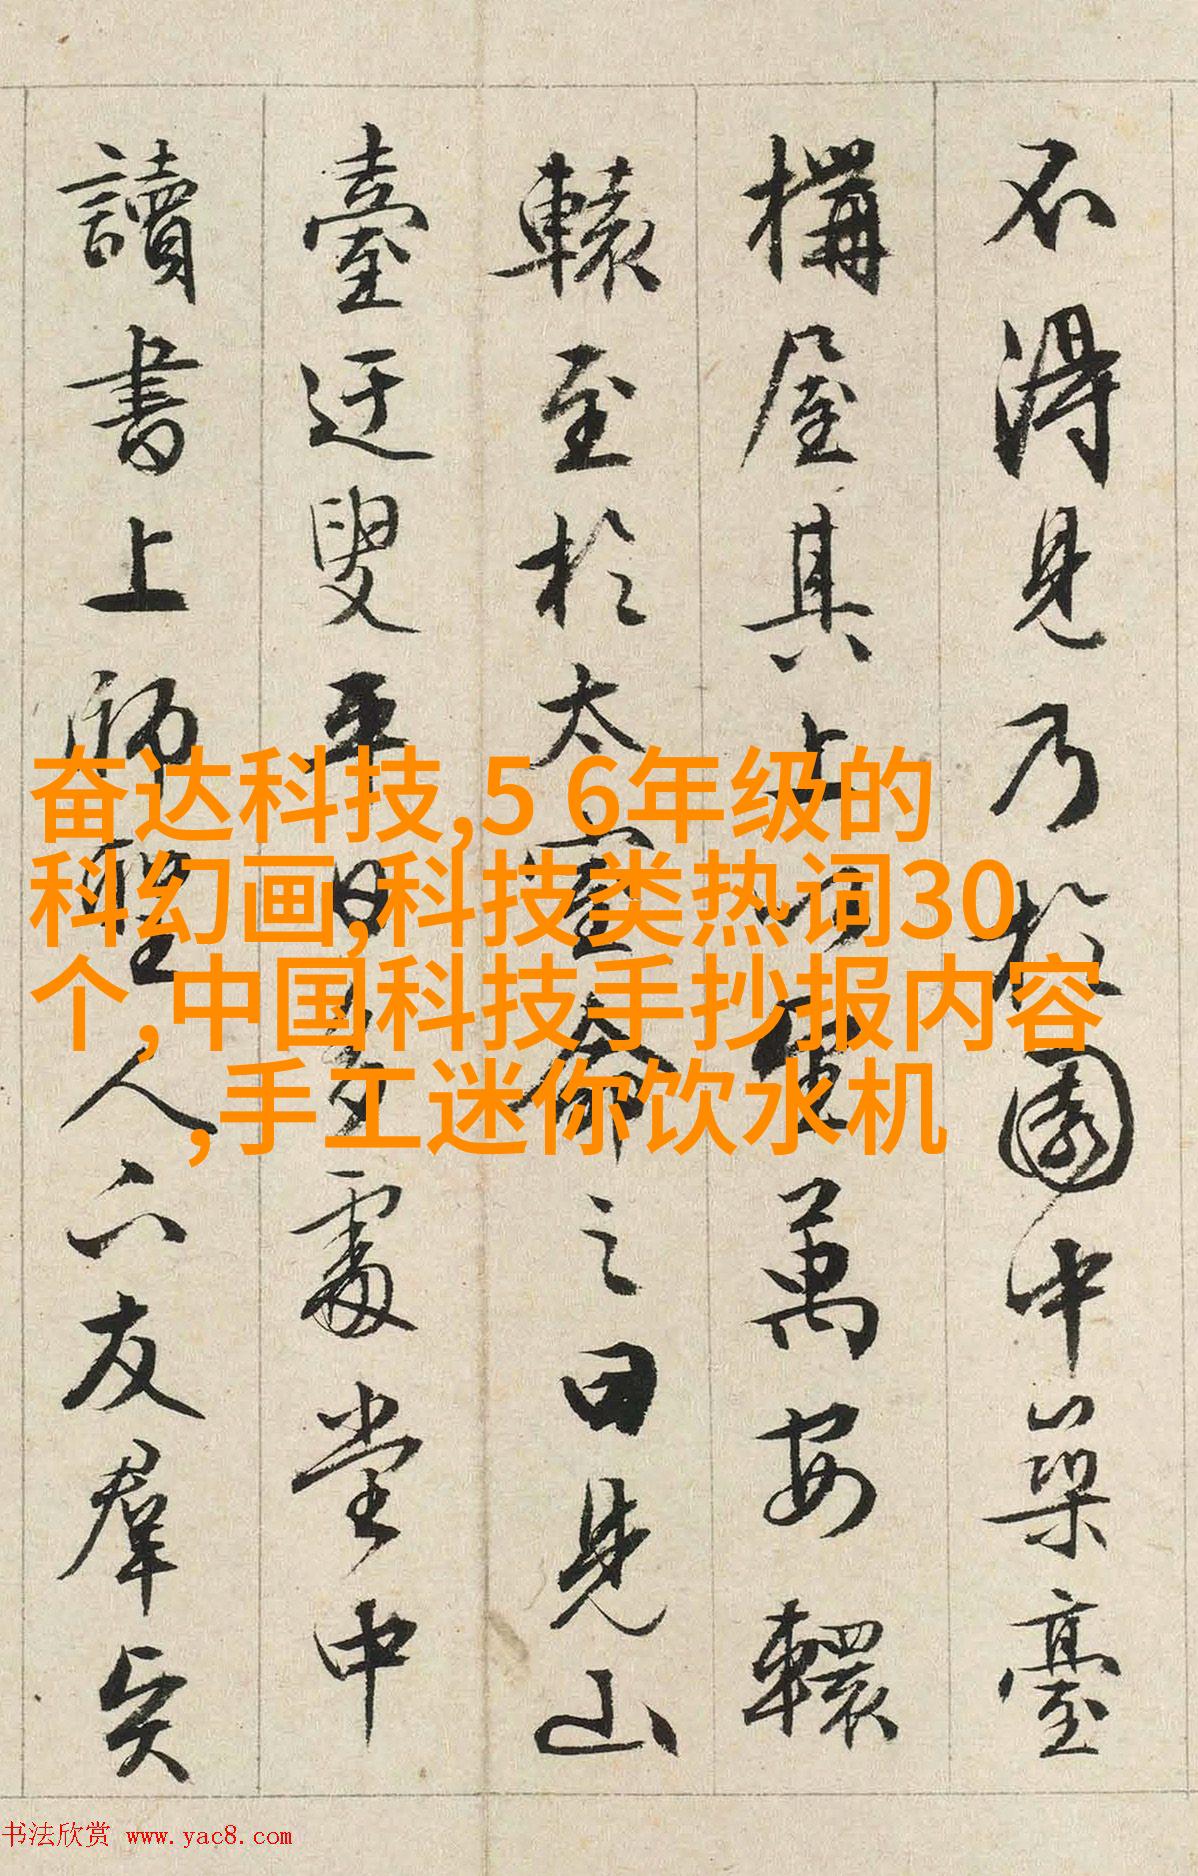 不得見乃於園中築臺
構屋其上以望萬安轘
轅至於太室命之曰見山
臺迂叟平日多處堂中
讀書上師聖人下友群賢
奋达科技,5 6年级的
科幻画,科技类热词30
个,中国科技手抄报内容
,手工迷你饮水机
书法欣赏 www.yac8.com